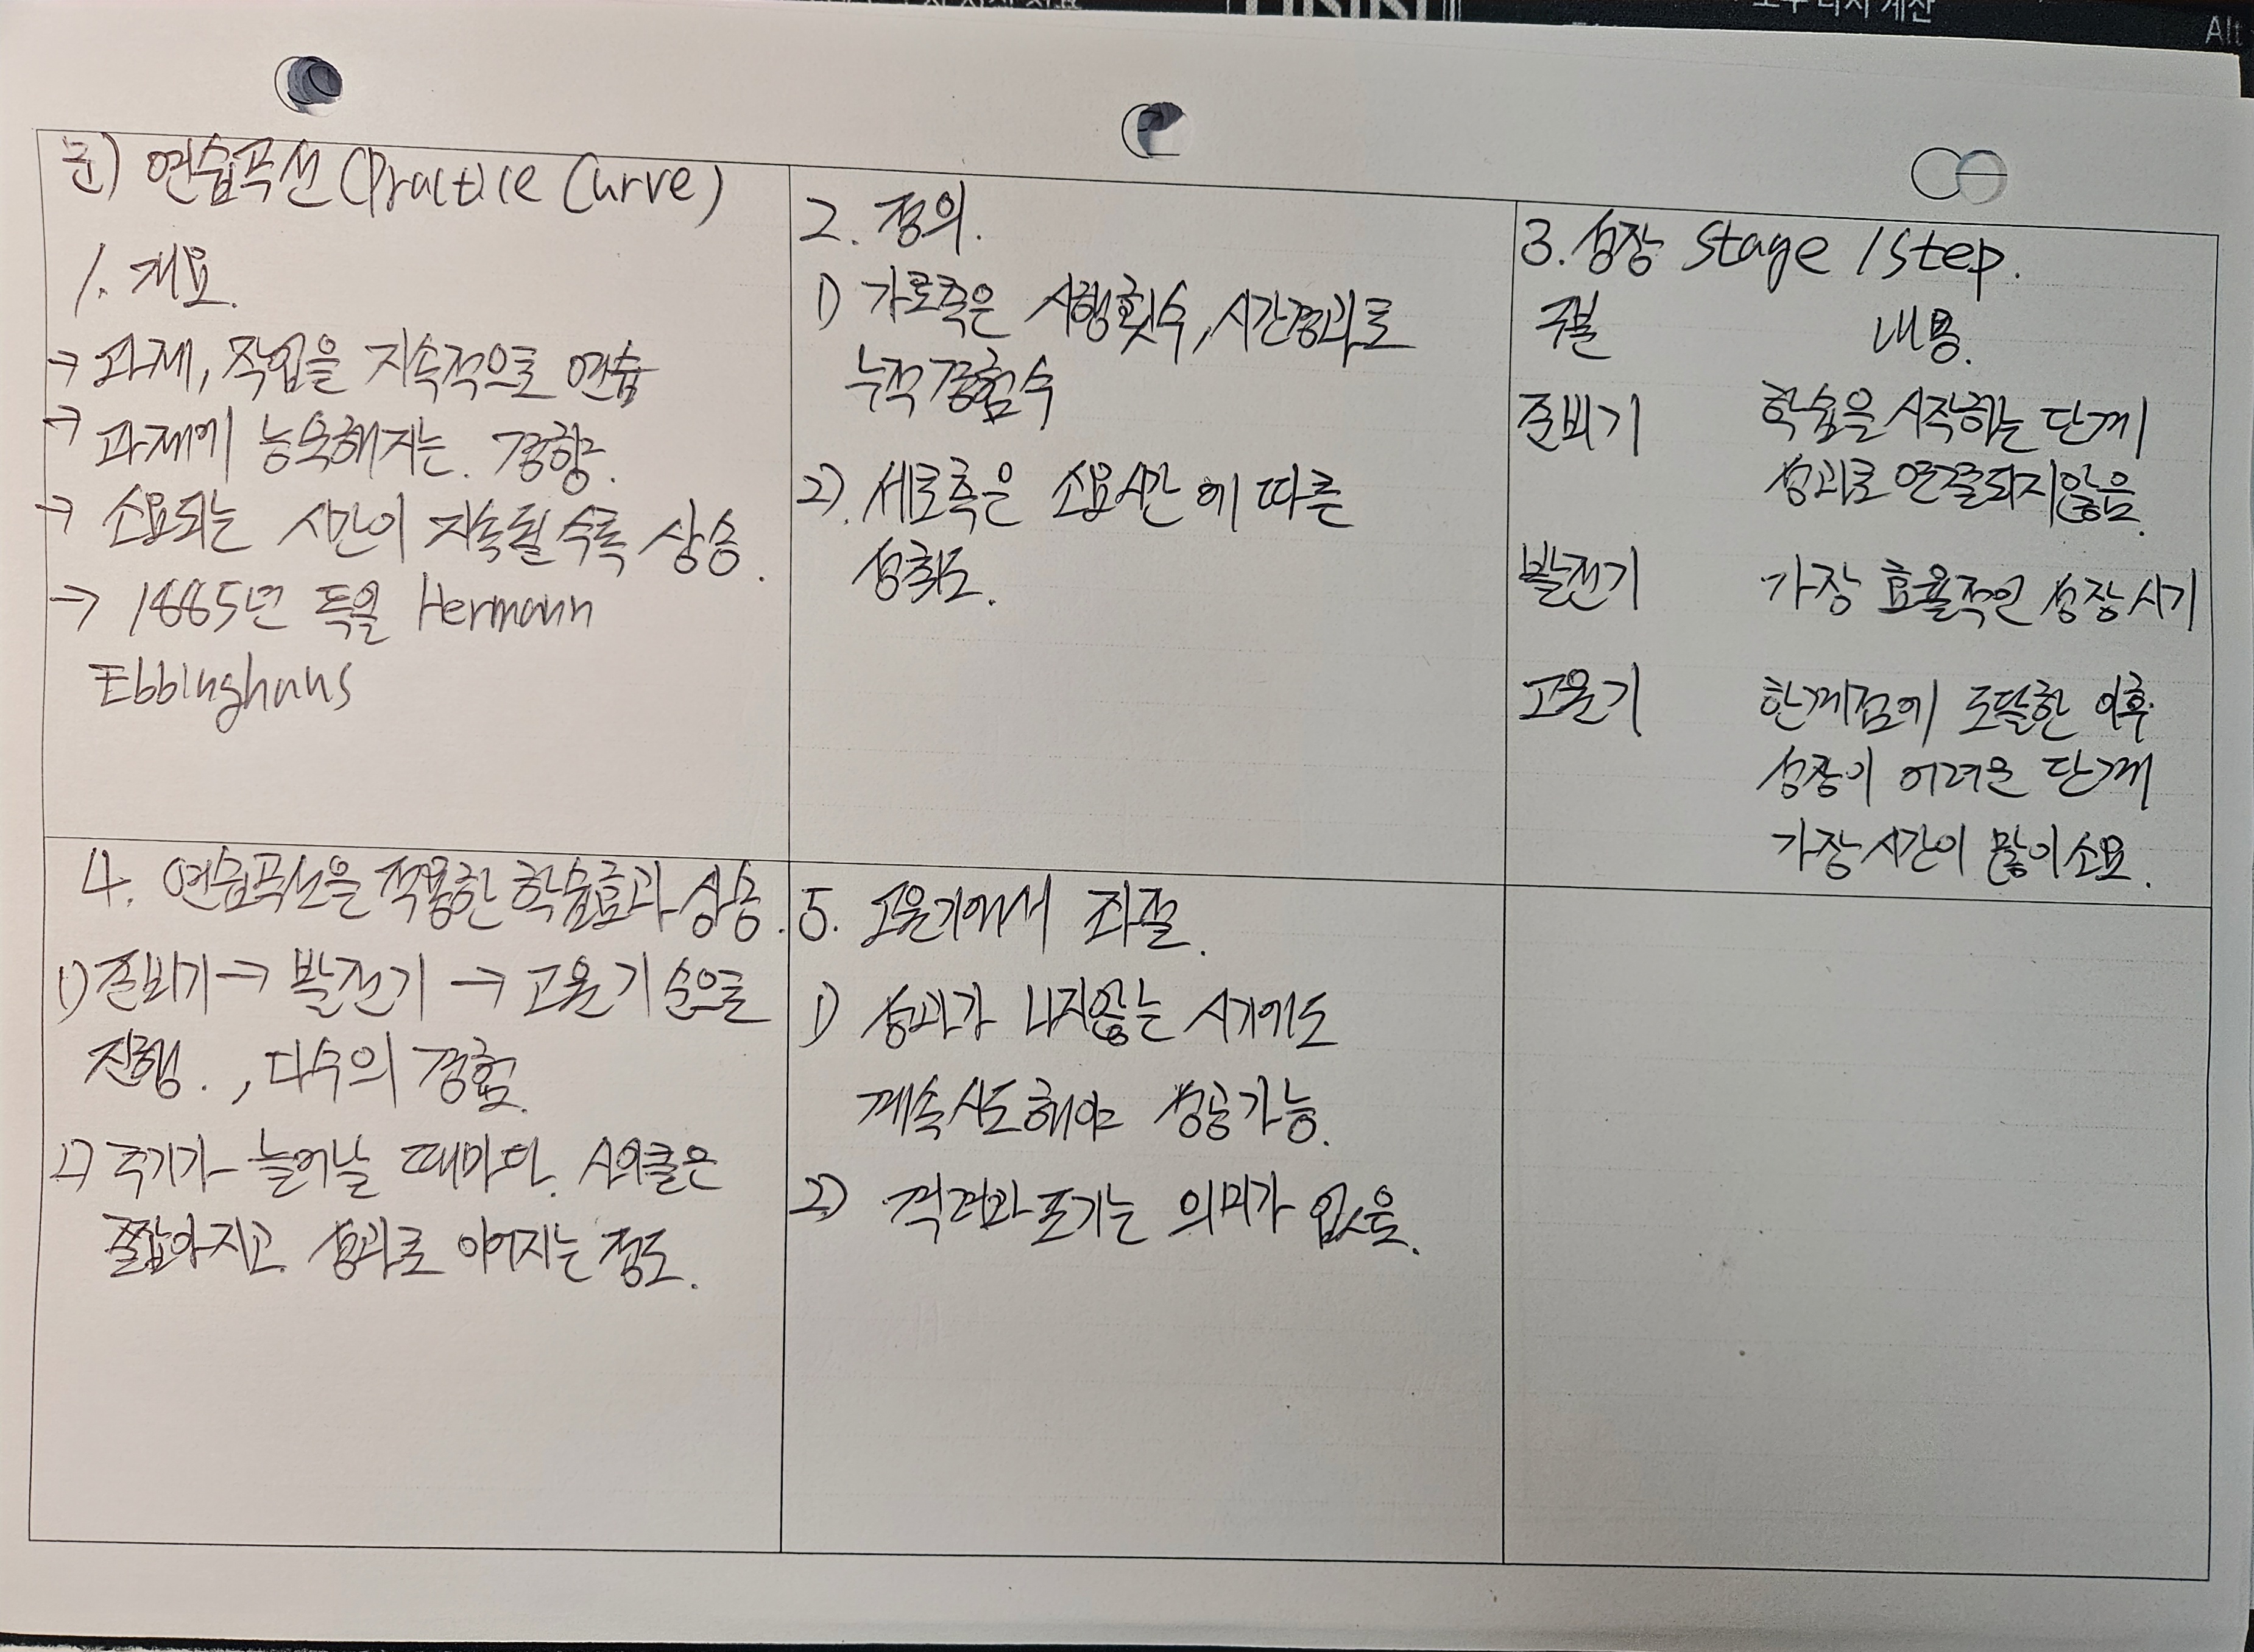 문) 연습곡선 (Practice Curve)
1. 개요.
→ 과제, 작업을 지속적으로 연습
→ 과제에 능숙해지는. 경향.
→ 소요되는 시간이 지속될 수록 상승.
→ 1885년 독일 Hermann
Ebbinghaus
2. 정의.
1) 가로축은 시행횟수, 시간경과로
누적경험수
2). 세로축은 소요시간에 따른
성취도.
3. 성장 Stage / Step.
구분 내용.
준비기 학습을 시작하는 단계
성과로 연결되지않음
발전기 가장 효율적인 성장시기
고원기 한계점에 도달한 이후
성장이 어려운 단계
가장 시간이 많이 소요.
4. 연습곡선을 적용한 학습효과 상승.
1) 준비기 → 발전기 → 고원기 순으로
진행. , 다수의 경험.
2) 주기가 늘어날 때마다. 사이클은
짧아지고. 성과로 이어지는 정도.
5. 고원기에서 좌절.
1) 성과가 나지않는 시기에도
계속 시도해야 성공가능.
2) 격려와 포기는 의미가 없음.
Alt